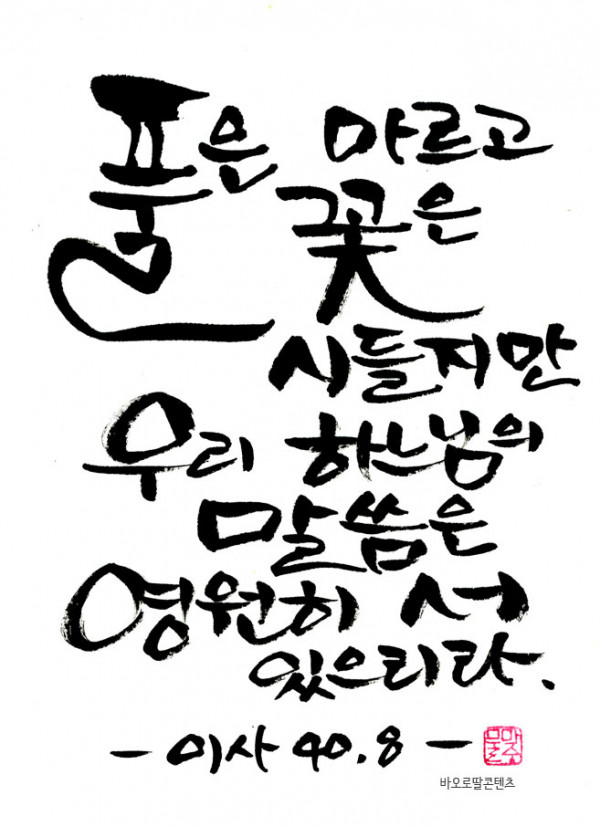 풀은 마르고
꽃은
시들지만
우리 하느님의
말씀은
영원히 서
있으리라.
- 이사 40.8 -
바오로딸콘텐츠